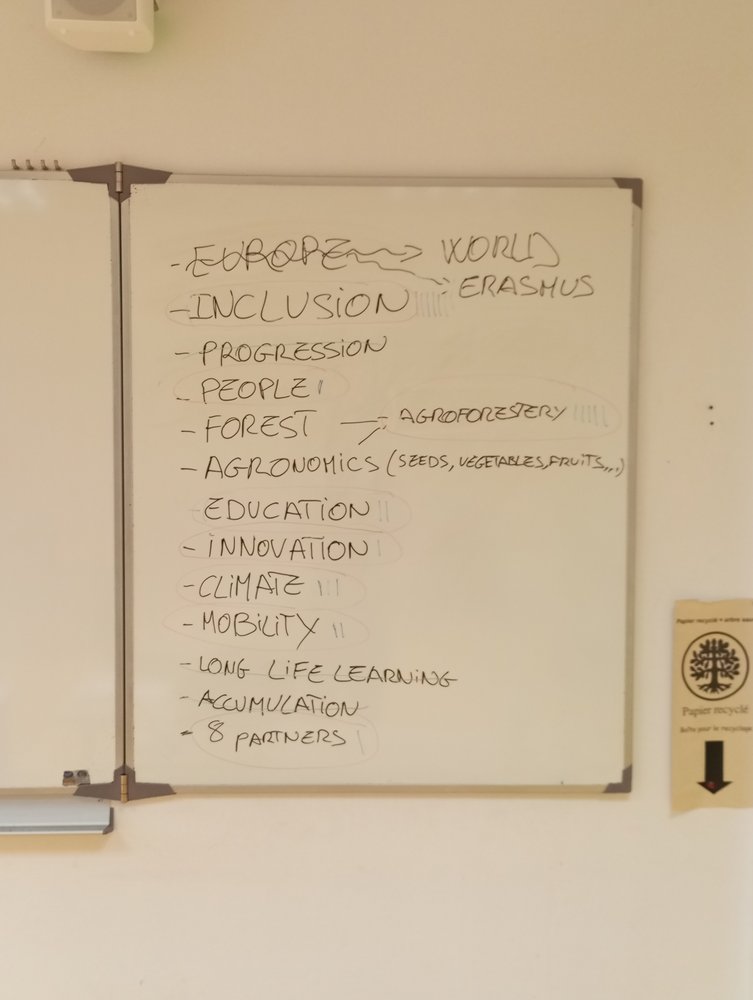 - EUROPE → WORLD
ERASMUS
- INCLUSION |||||
- PROGRESSION
- PEOPLE |
- FOREST → AGROFORESTERY |||||
- AGRONOMICS (SEEDS, VEGETABLES, FRUITS,,,)
EDUCATION ||
- INNOVATION |
- CLIMATE |||
- MOBILITY ||
- LONG LIFE LEARNING
- ACCUMULATION
- 8 PARTNERS |
Papier recyclé